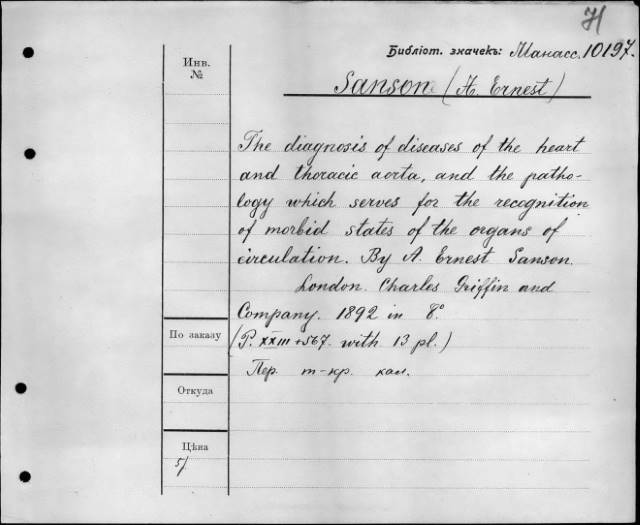 Н
Библіот. значекъ: Манасс. 10197.
Инв.
№
Sanson (A. Ernest)
The diagnosis of diseases of the heart
and thoracic aorta, and the patho-
logy which serves for the recognition
of morbid states of the organs of
circulation. By A. Ernest Sanson.
London. Charles Griffin and
Company. 1892 in 8°.
По заказу
(P. XXIII+567. with 13 pl.)
Пер. т-кр. кал.
Откуда
Цѣна
5/.